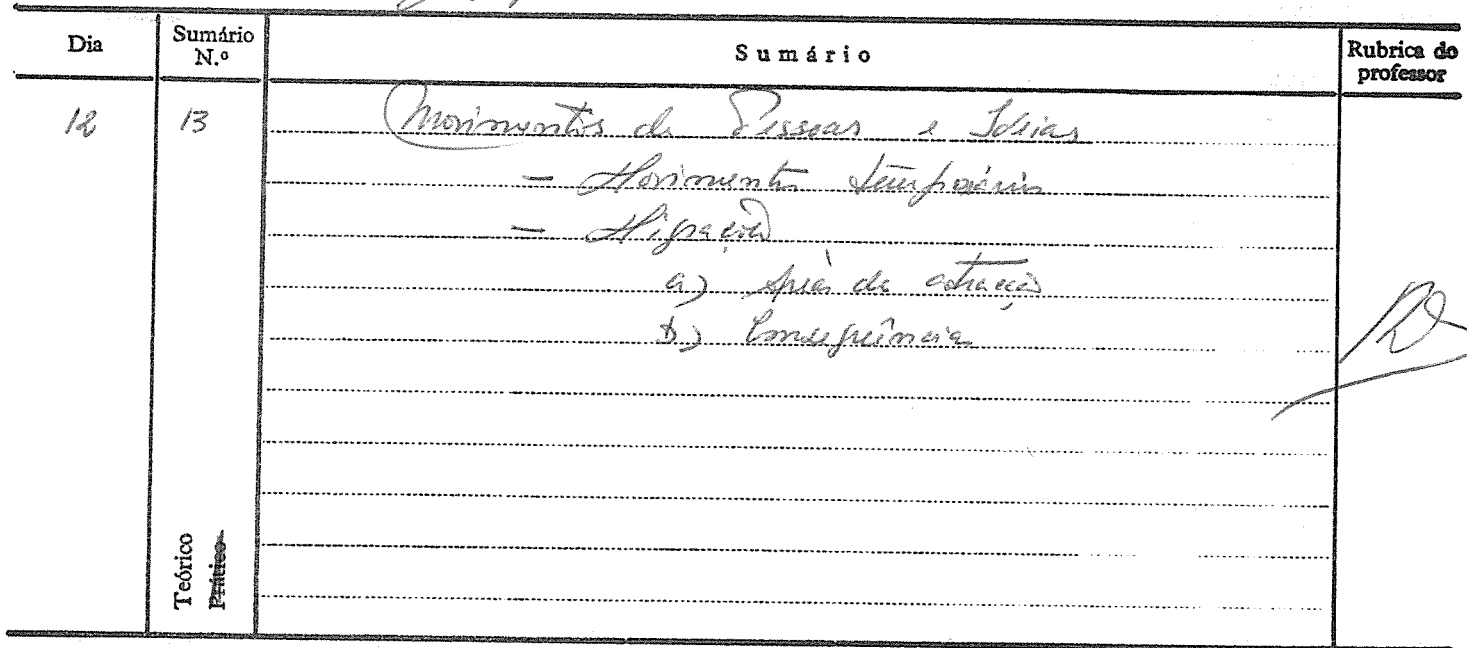 Dia Sumário N.º Sumário Rubrica do professor
12 13 Movimentos de Pessoas e Ideias
- Movimentos temporários
- Migrações
a) Áreas de atracção
b) Consequências
Teórico
Prático